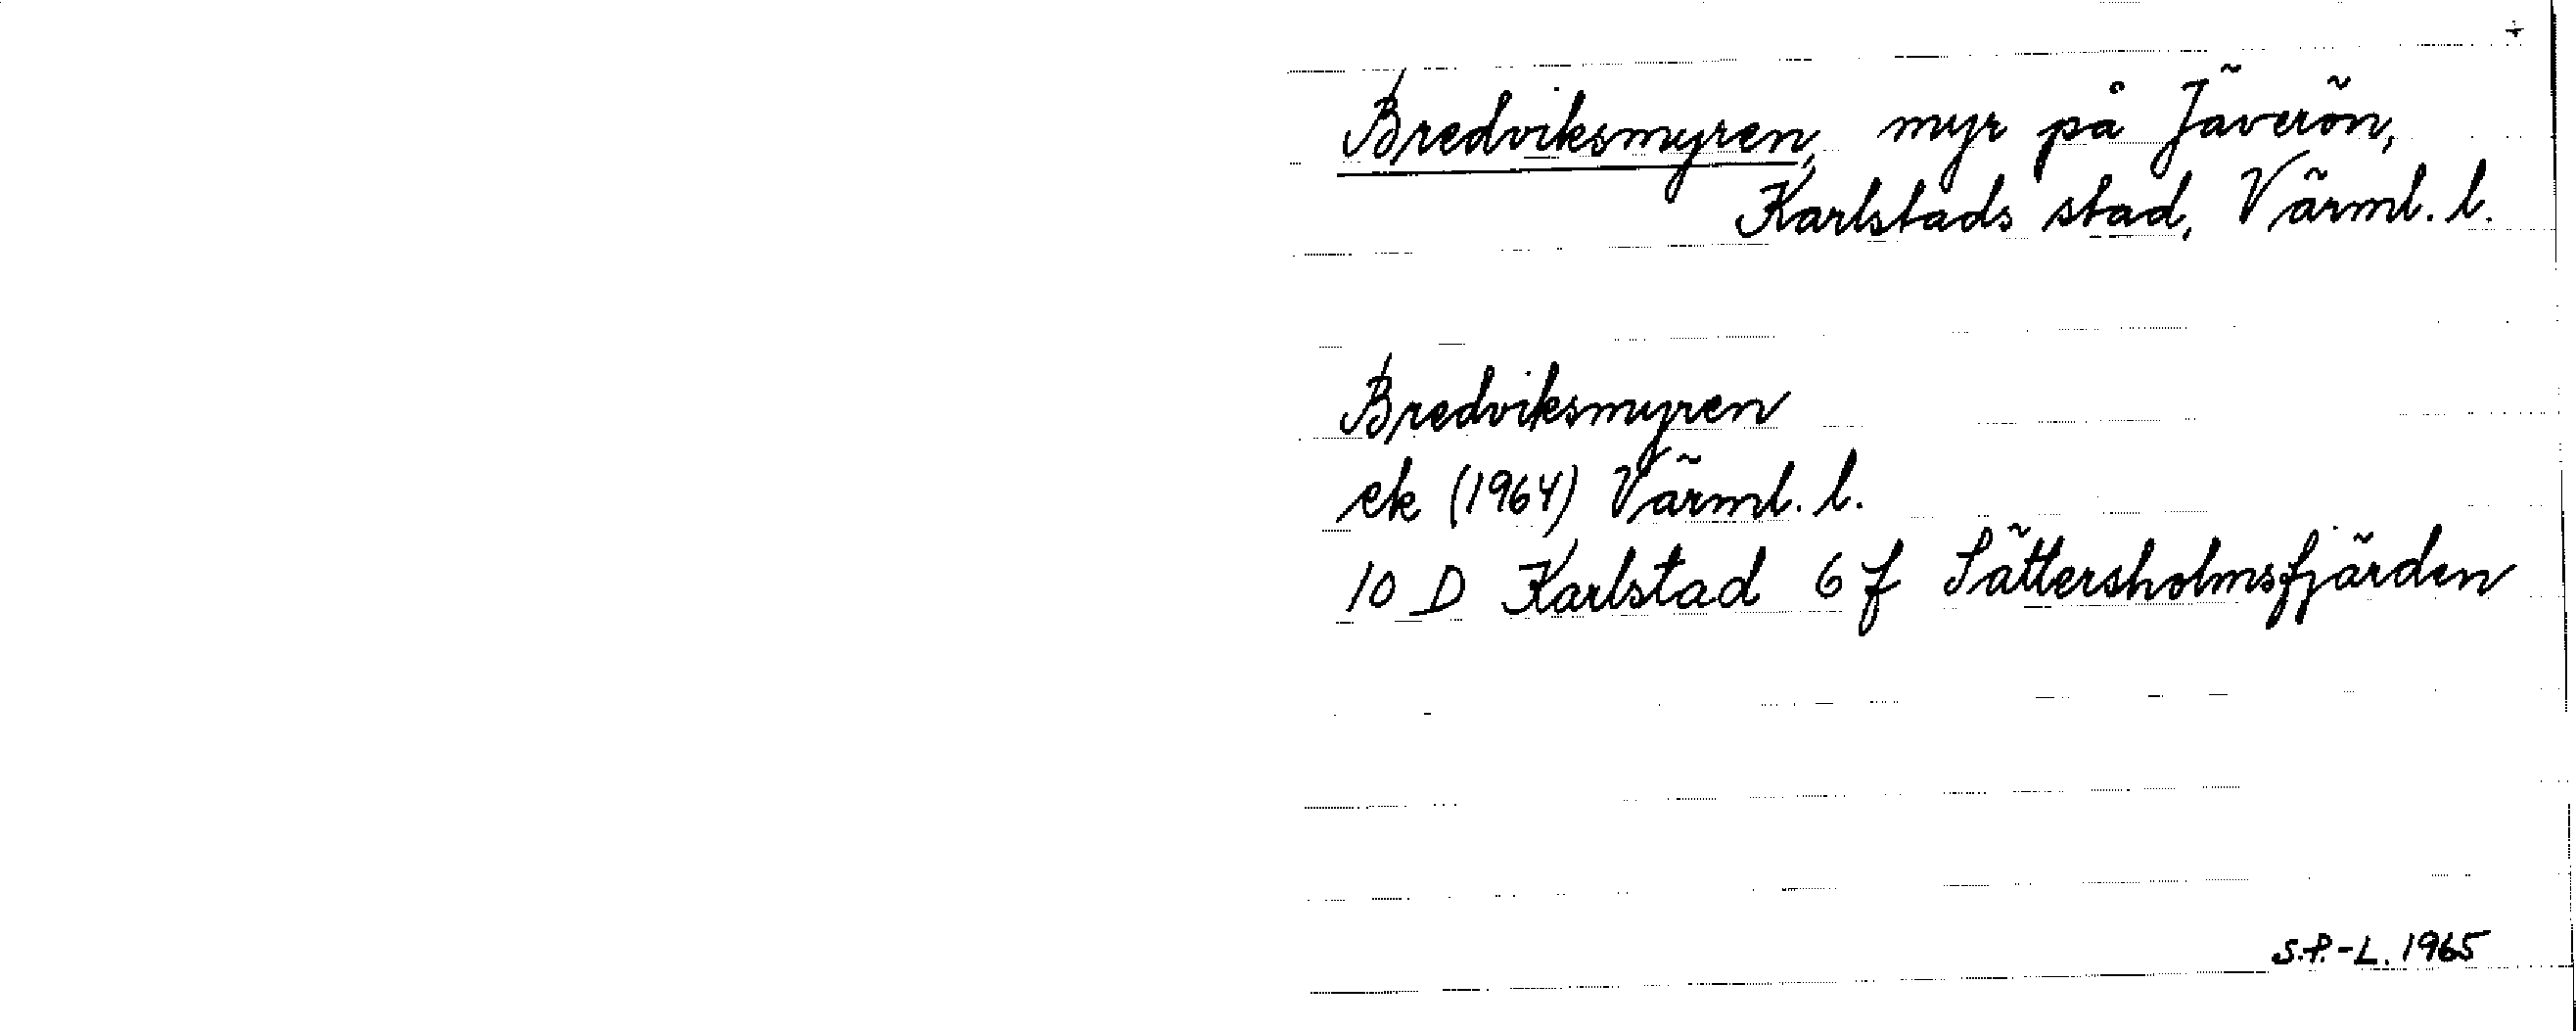 Bredviksmyren, myr på Jäverön,
Karlstads stad, Värml. l.
Bredviksmyren
ek (1964) Värml. l.
10 D Karlstad 6 f Sättersholmsfjärden
S.P.-L. 1965